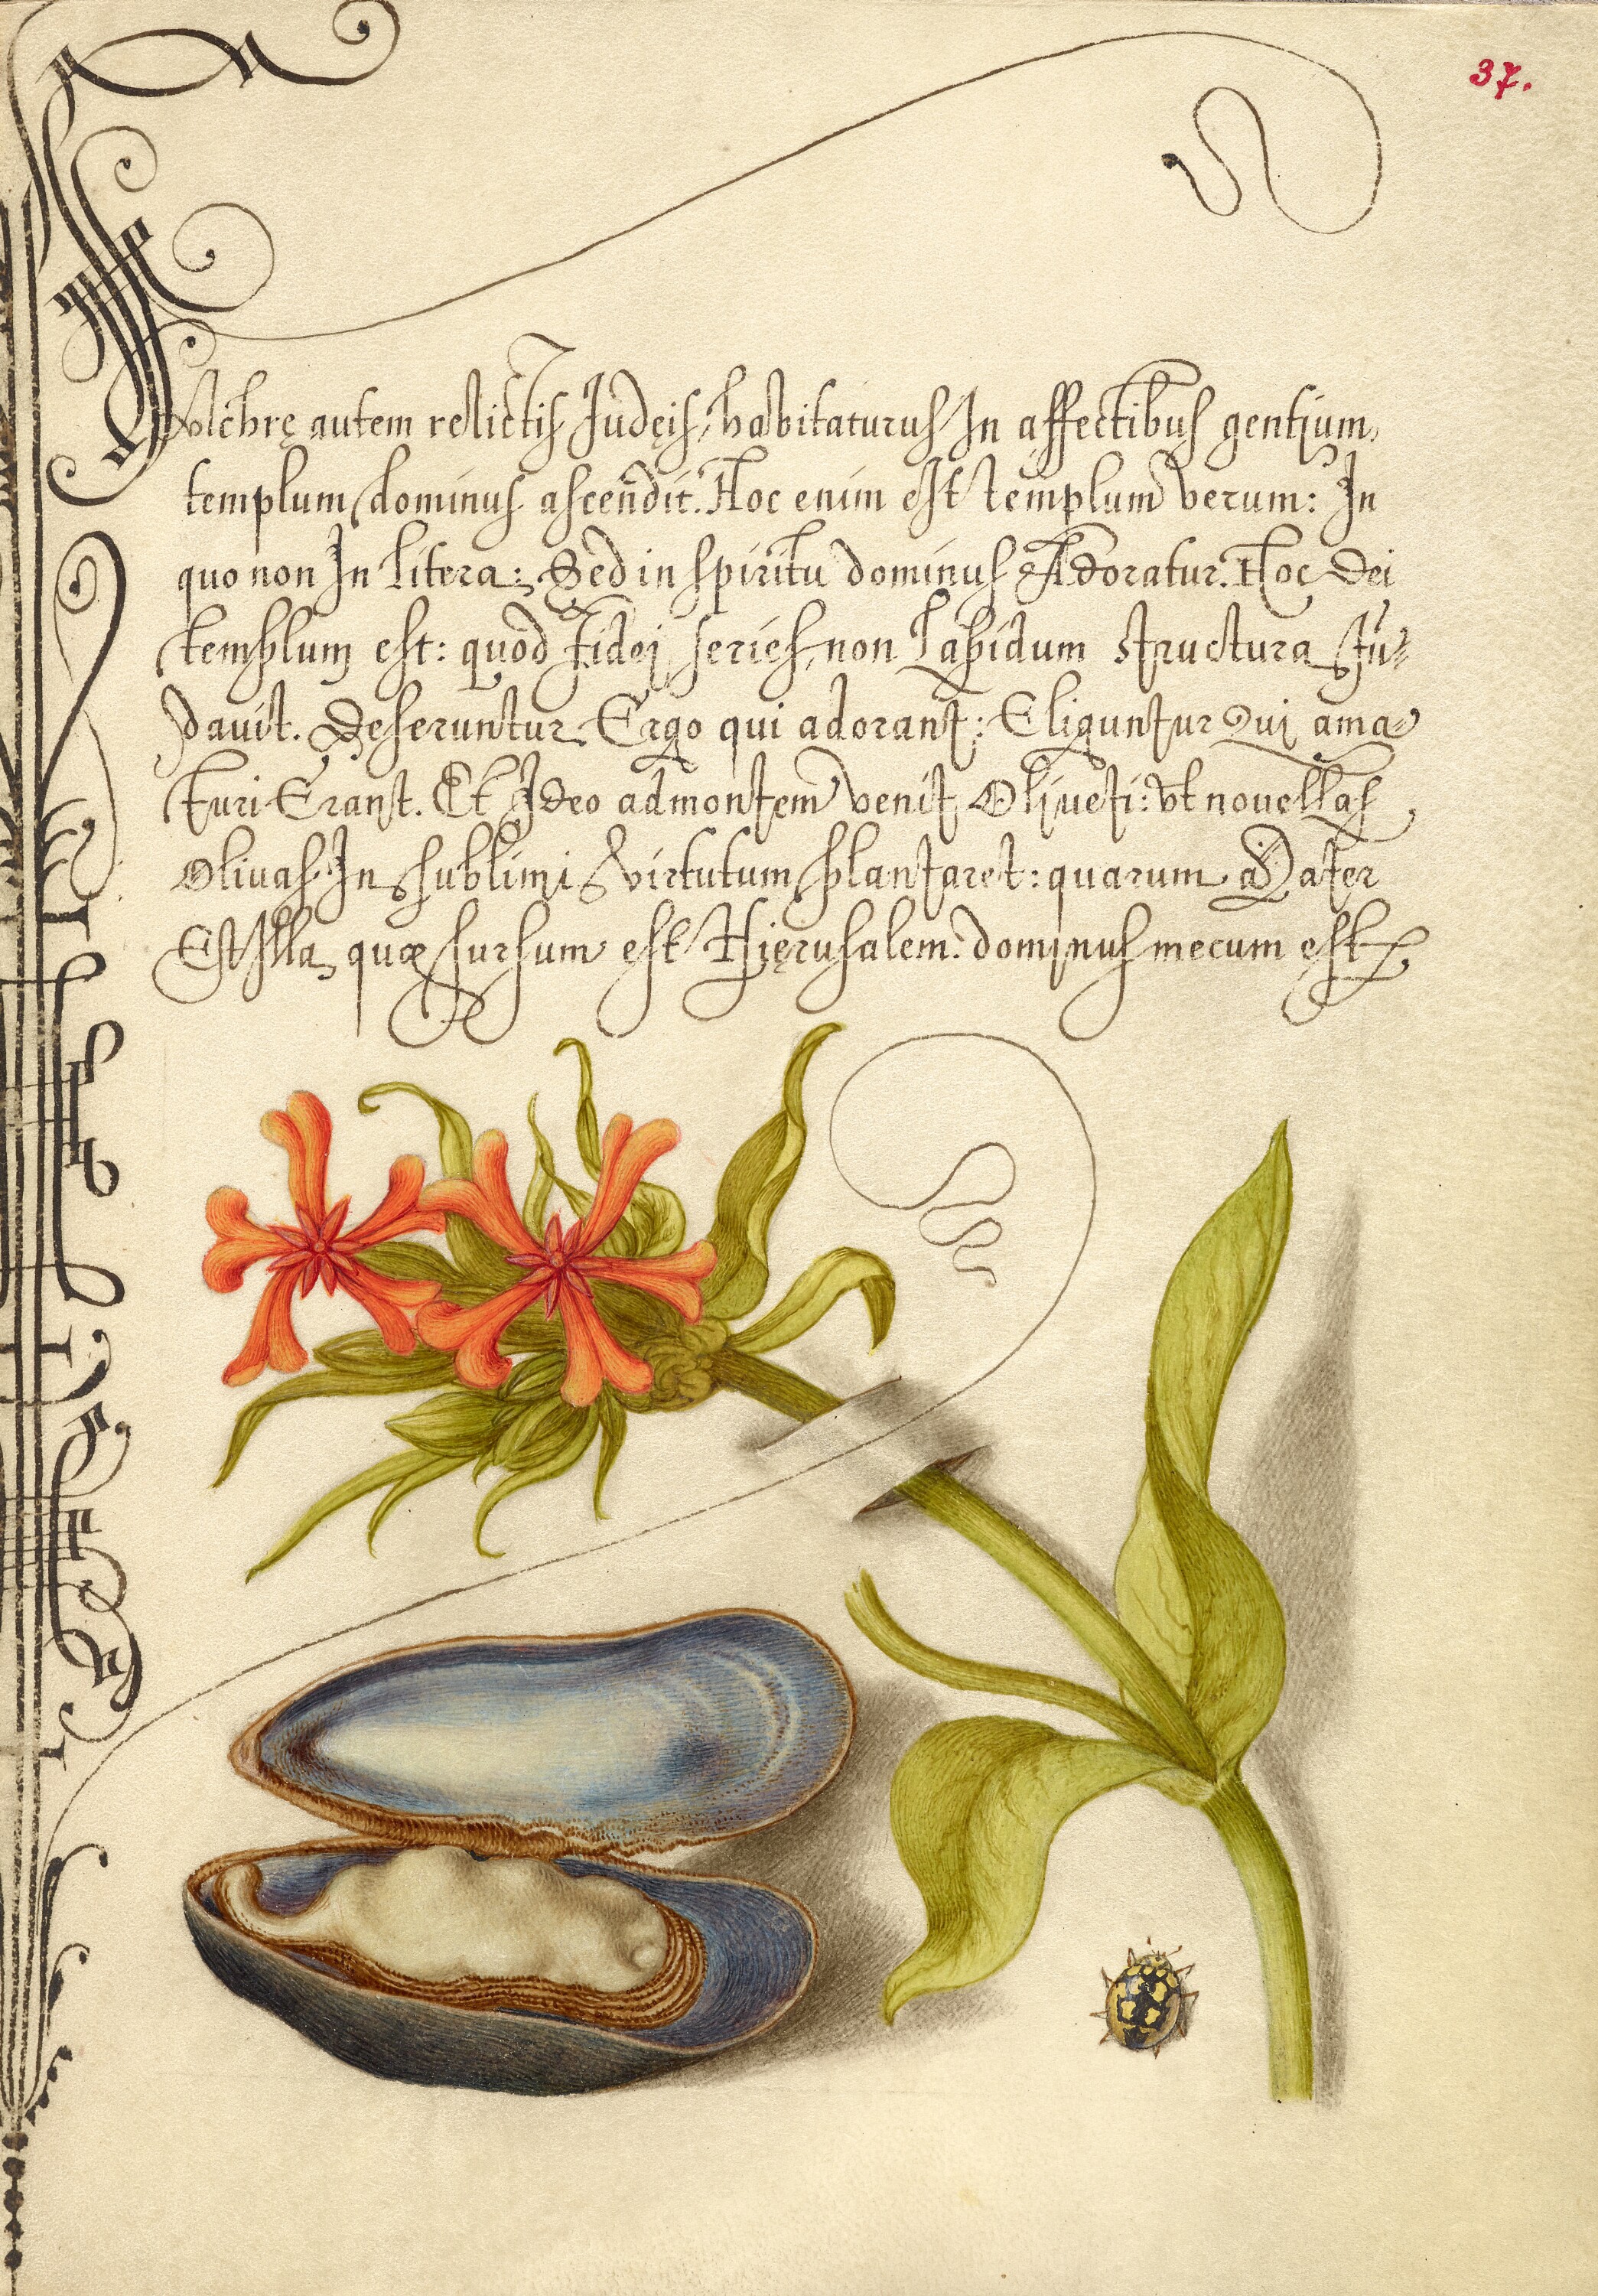 37.
Pulchrę autem relictis Judęis, habitaturus In affectibus gentium,
templum dominus ascendit. Hoc enim est templum verum: In
quo non In litera: Sed in spiritu dominus Adoratur. Hoc Dei
templum est: quod fidej series, non Lapidum structura fu-
davit. Deseruntur Ergo qui adorant: Eliguntur Qui ama-
turi Erant. Et Ideo ad montem venit Oliueti: vt nouellas
Oliuas In sublimi virtutum plantaret: quarum Mater
Est Illa, quæ sursum est Hięrusalem. dominus mecum est